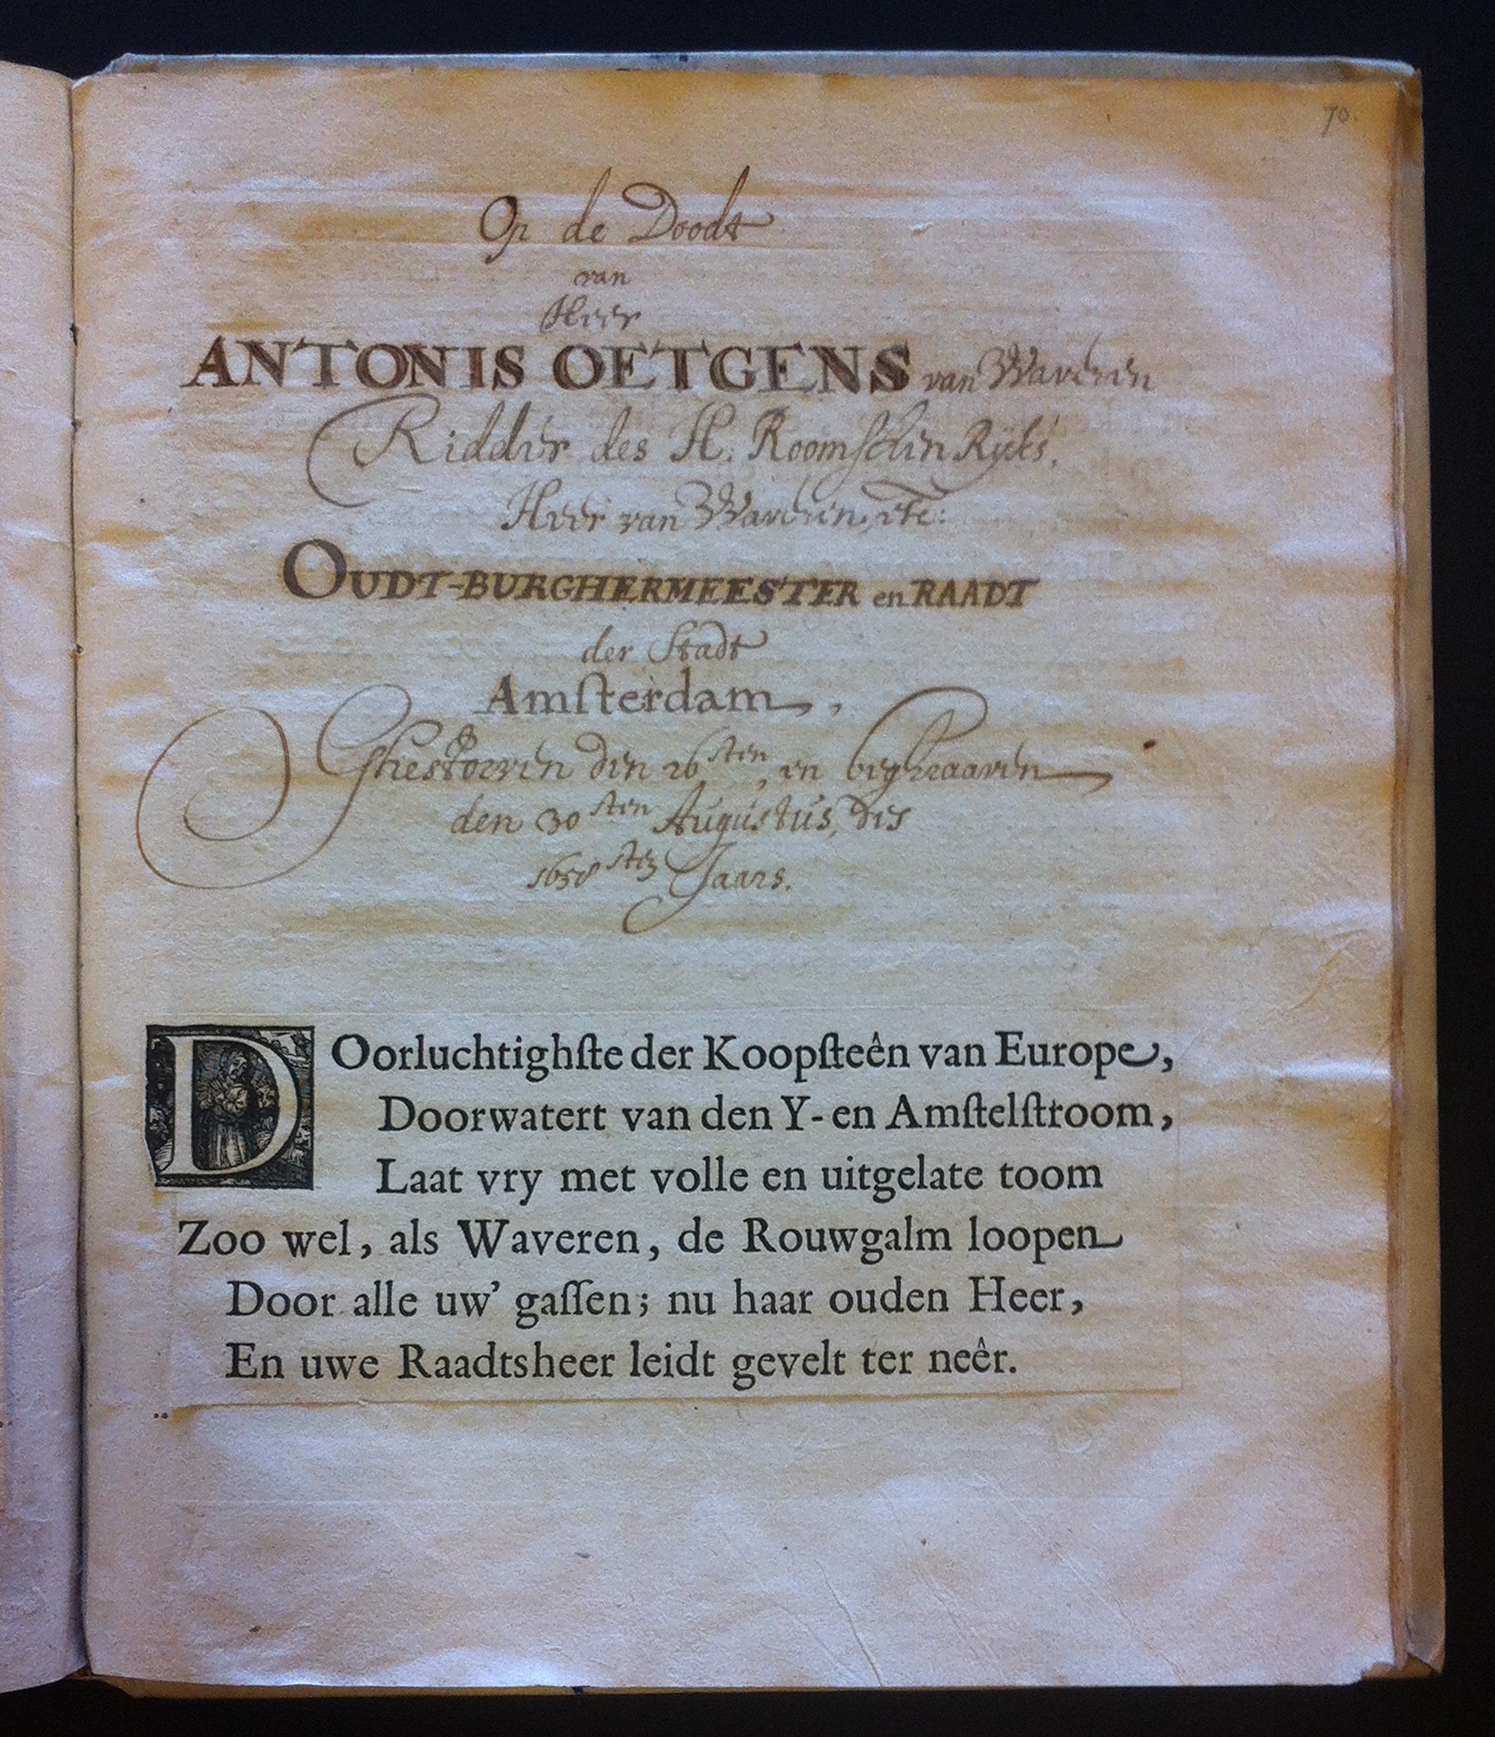 70.
Op de Doodt
van
Heer
ANTONIS OETGENS van Waveren
Ridder des H. Roomschen Rijks,
Heer van Waveren, etc:
OUDT-BURGHERMEESTER en RAADT
der Stadt
Amſterdam,
Ghestorven den 26sten, en beghraaven
den 30sten Augustus, des
1658sten Jaars.
DOorluchtighſte der Koopſteên van Europe,
Doorwatert van den Y- en Amſtelſtroom,
Laat vry met volle en uitgelate toom
Zoo wel, als Waveren, de Rouwgalm loopen
Door alle uw' gaſſen; nu haar ouden Heer,
En uwe Raadtsheer leidt gevelt ter neêr.